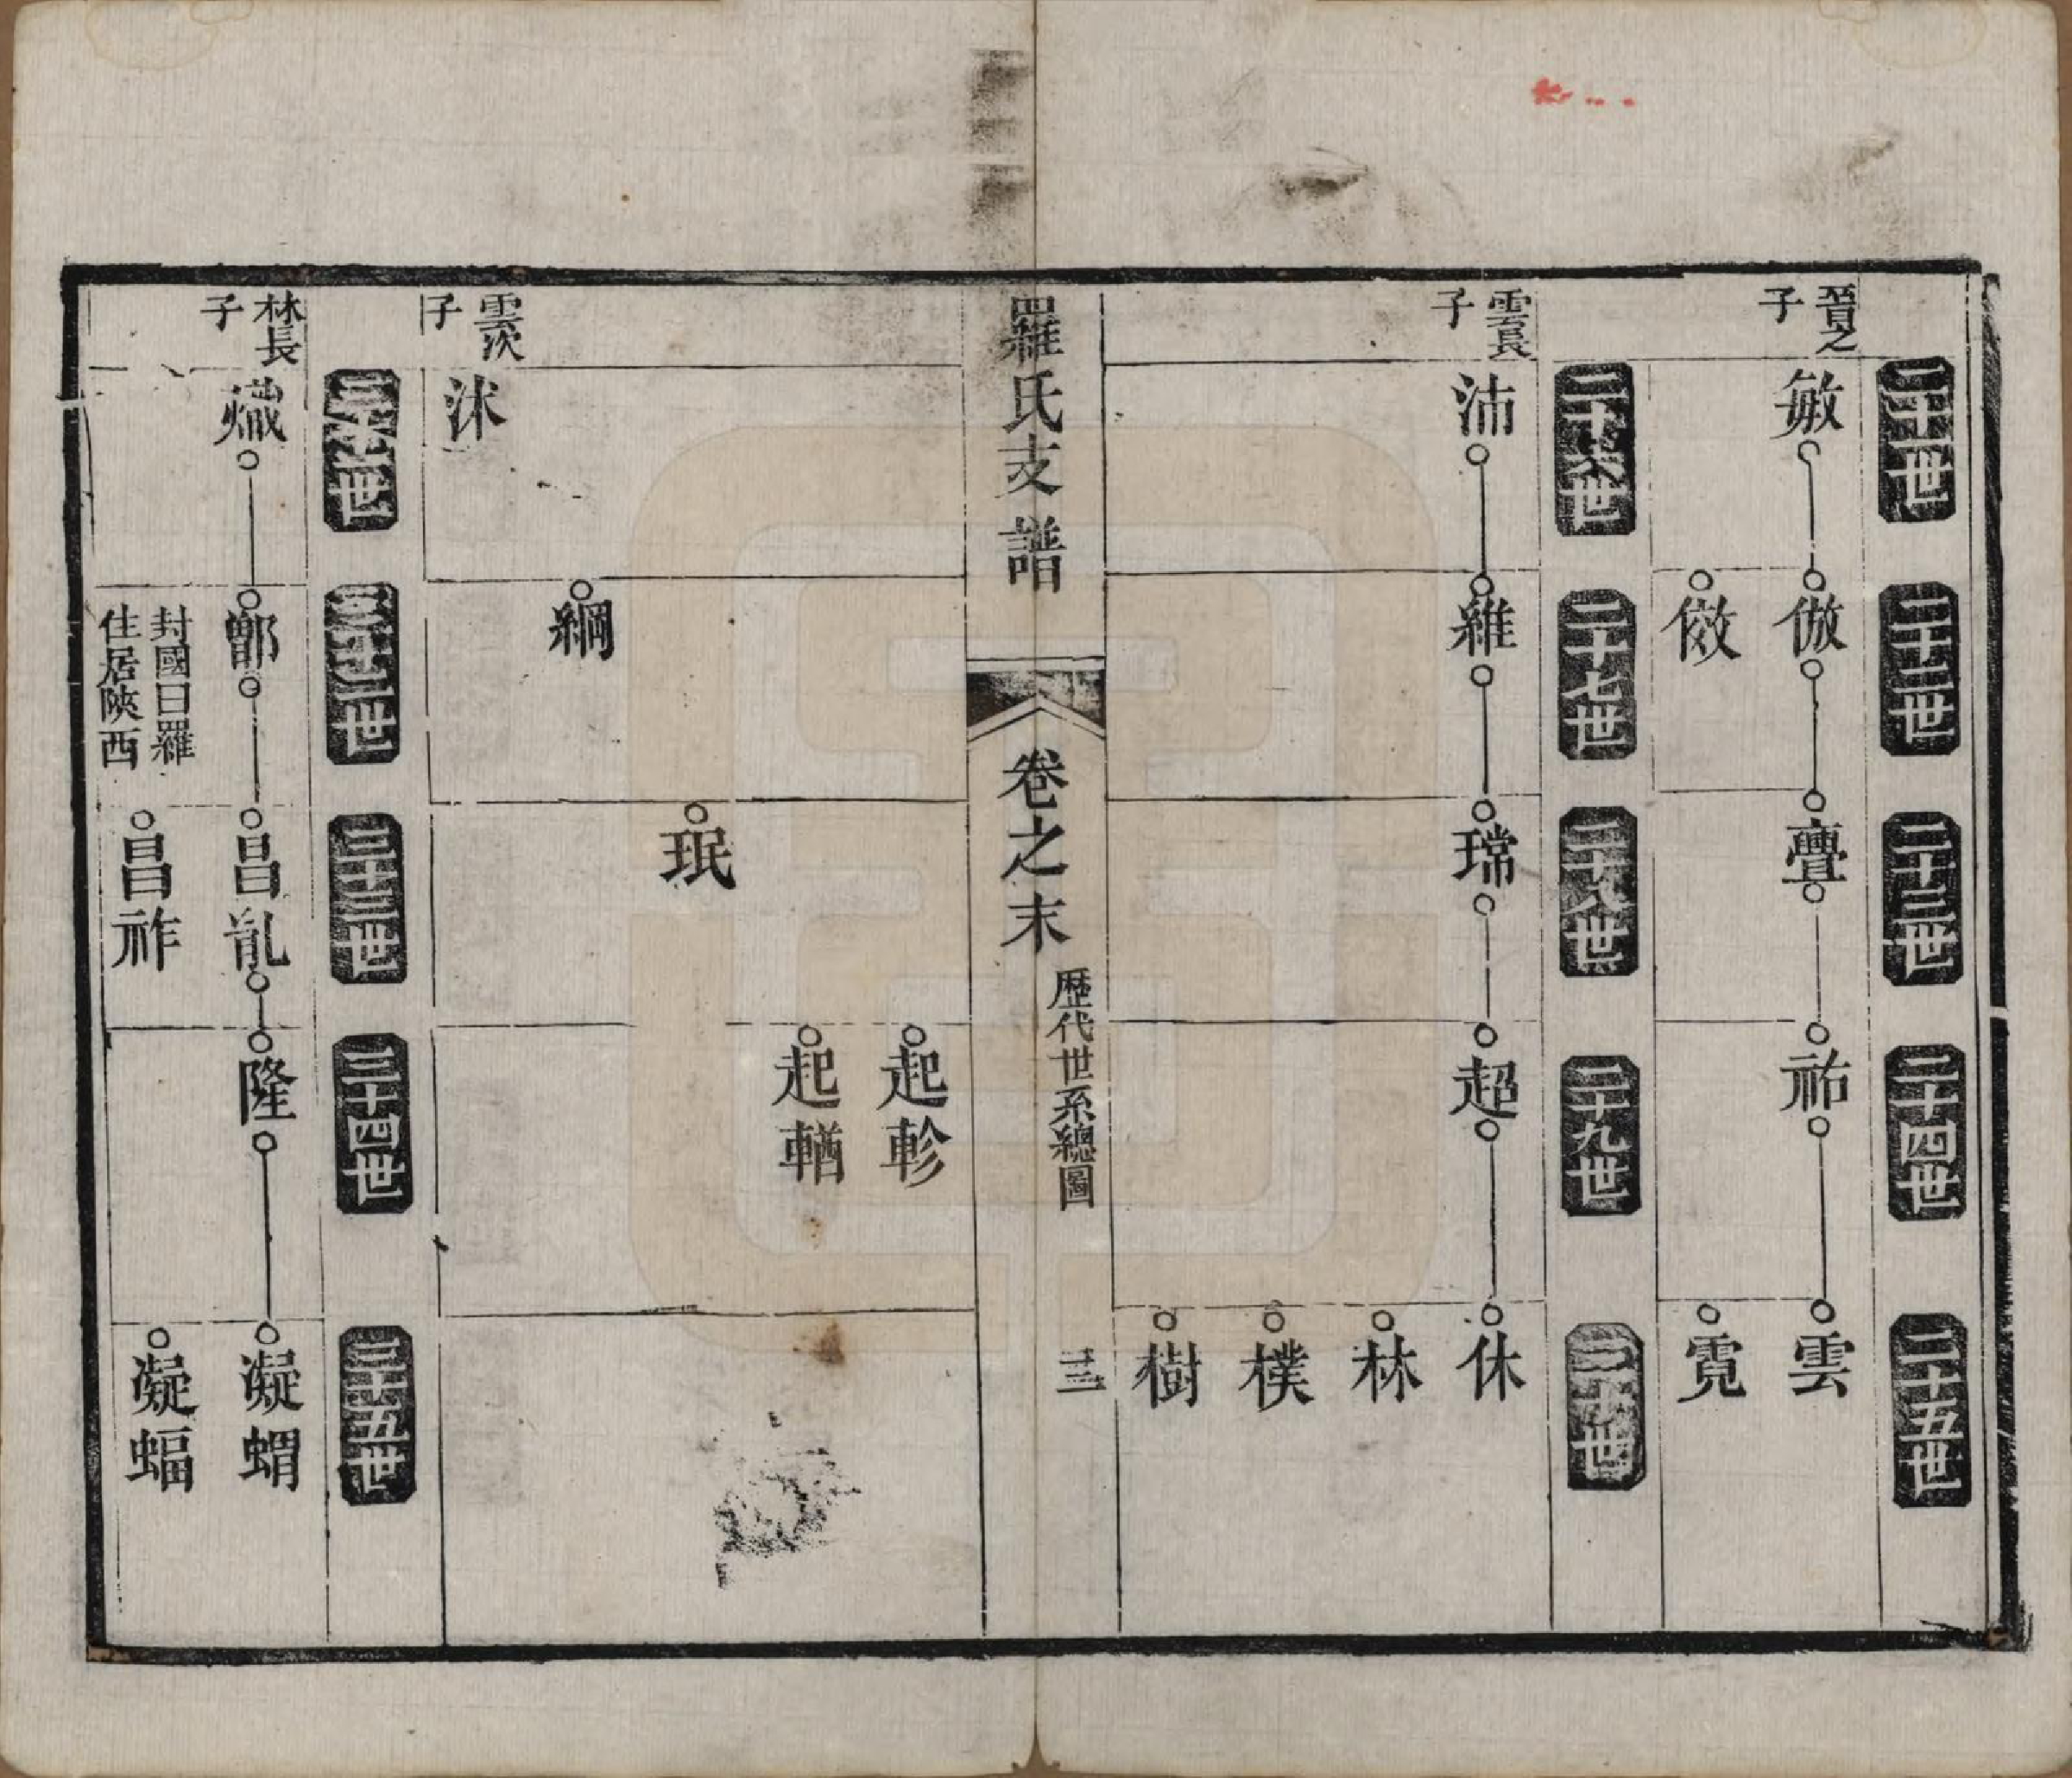 二十一世
二十二世
二十三世
二十四世
二十五世
晉之
子
敏
倣
亹
祐
雲
傚
霓
二十六世
二十七世
二十八世
二十九世
三十世
雲長
子
沛
維
璫
超
休
林
樸
樹
羅氏支譜
卷之末
歷代世系總圖
三
起軫
起輶
珉
綱
雲次
子
沭
三十一世
三十二世
三十三世
三十四世
三十五世
林長
子
熾
鄫
昌胤
隆
凝蝟
封國曰羅
住居陝西
昌祚
凝蝠